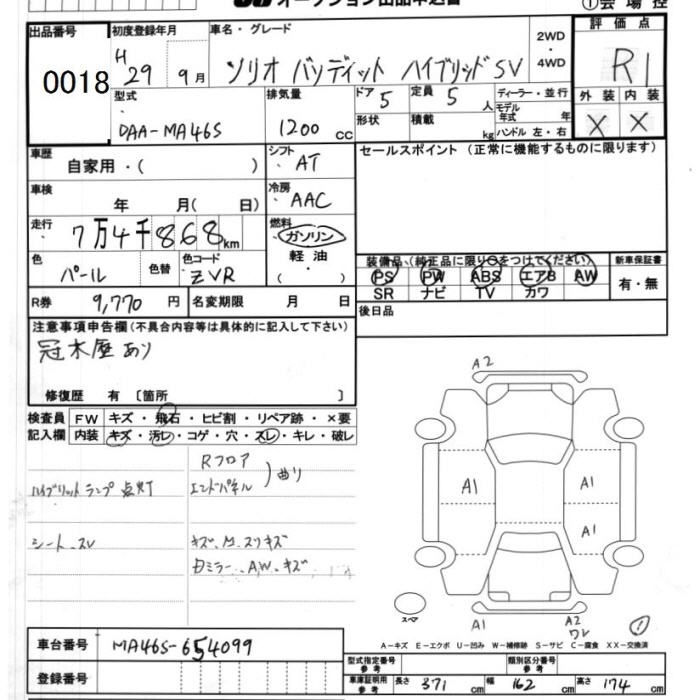 オークション出品申込書
①会場控
出品番号 初度登録年月 車名・グレード 2WD・4WD 評価点
0018 H29 9月 ソリオ バンディット ハイブリッドSV R1
型式 排気量 ドア 5 定員 5人 ディーラー・並行 外装 内装
DAA-MA46S 1200cc 形状 積載 kg モデル年式 年 X X
ハンドル 左・右
車歴 自家用・( ) シフト AT セールスポイント (正常に機能するものに限ります)
車検 年 月( 日) 冷房 AAC
走行 7万4千868km 燃料 ガソリン 軽油・
色 パール 色替 色コード ZVR
装備品 (純正品に限り○をつけてください) 新車保証書
PS PW ABS エアB AW 有・無
SR ナビ TV カワ
R券 9,770円 名変期限 月 日 後日品
注意事項申告欄(不具合内容等は具体的に記入して下さい)
冠水歴あり
修復歴 有 〔箇所 〕
検査員 FW キズ・飛石・ヒビ割・リペア跡・×要
記入欄 内装 キズ・汚レ・コゲ・穴・スレ・キレ・破レ
Rフロア
エンドパネル
曲り
ハイブリットランプ点灯
シート、スレ
キズ、M、スリキズ
A2
A1 A1
A1
A1 A2
ワレ
スペア
A-キズ E-エクボ U-凹み W-補修跡 S-サビ C-腐食 XX-交換済
車台番号 MA46S-654099
登録番号
型式指定番号参考 類別区分番号参考
車庫証明用参考 長さ 371cm 幅 162cm 高さ 174cm